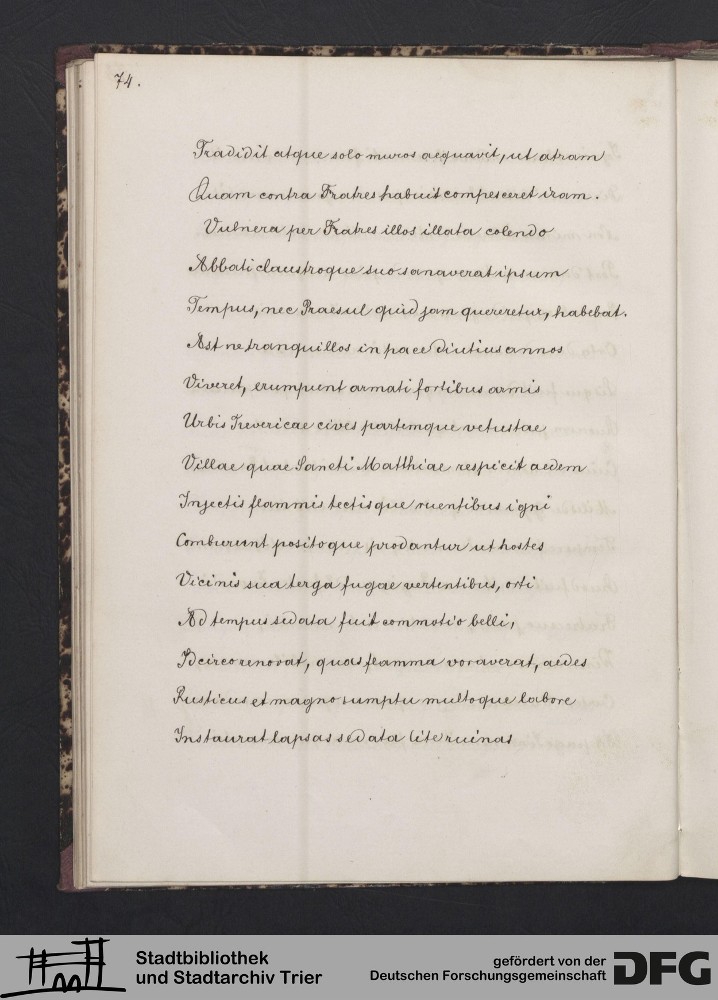 74.
Tradidit atque solo muros aequavit, ut atram
Quam contra Fratres habuit compesceret iram.
Vulnera per Fratres illos illata colendo
Abbati claustroque suo sanaverat ipsum
Tempus, nec Praesul quid jam quereretur, habebat.
Ast ne tranquillos in pace diutius annos
Viveret, erumpunt armati fortibus armis
Urbis Trevericae cives partemque vetustae
Villae quae Sancti Matthiae respicit aedem
Injectis flammis tectisque ruentibus igni
Comburunt positoque prodantur ut hostes
Vicinis sua terga fugae vertentibus, orti
Ad tempus sedata fuit commotio belli,
Idcirco renovat, quas flamma voraverat, aedes
Rusticus et magno sumptu multoque labore
Instaurat lapsas sedata lite ruinas
Stadtbibliothek
und Stadtarchiv Trier
gefördert von der
Deutschen Forschungsgemeinschaft
DFG